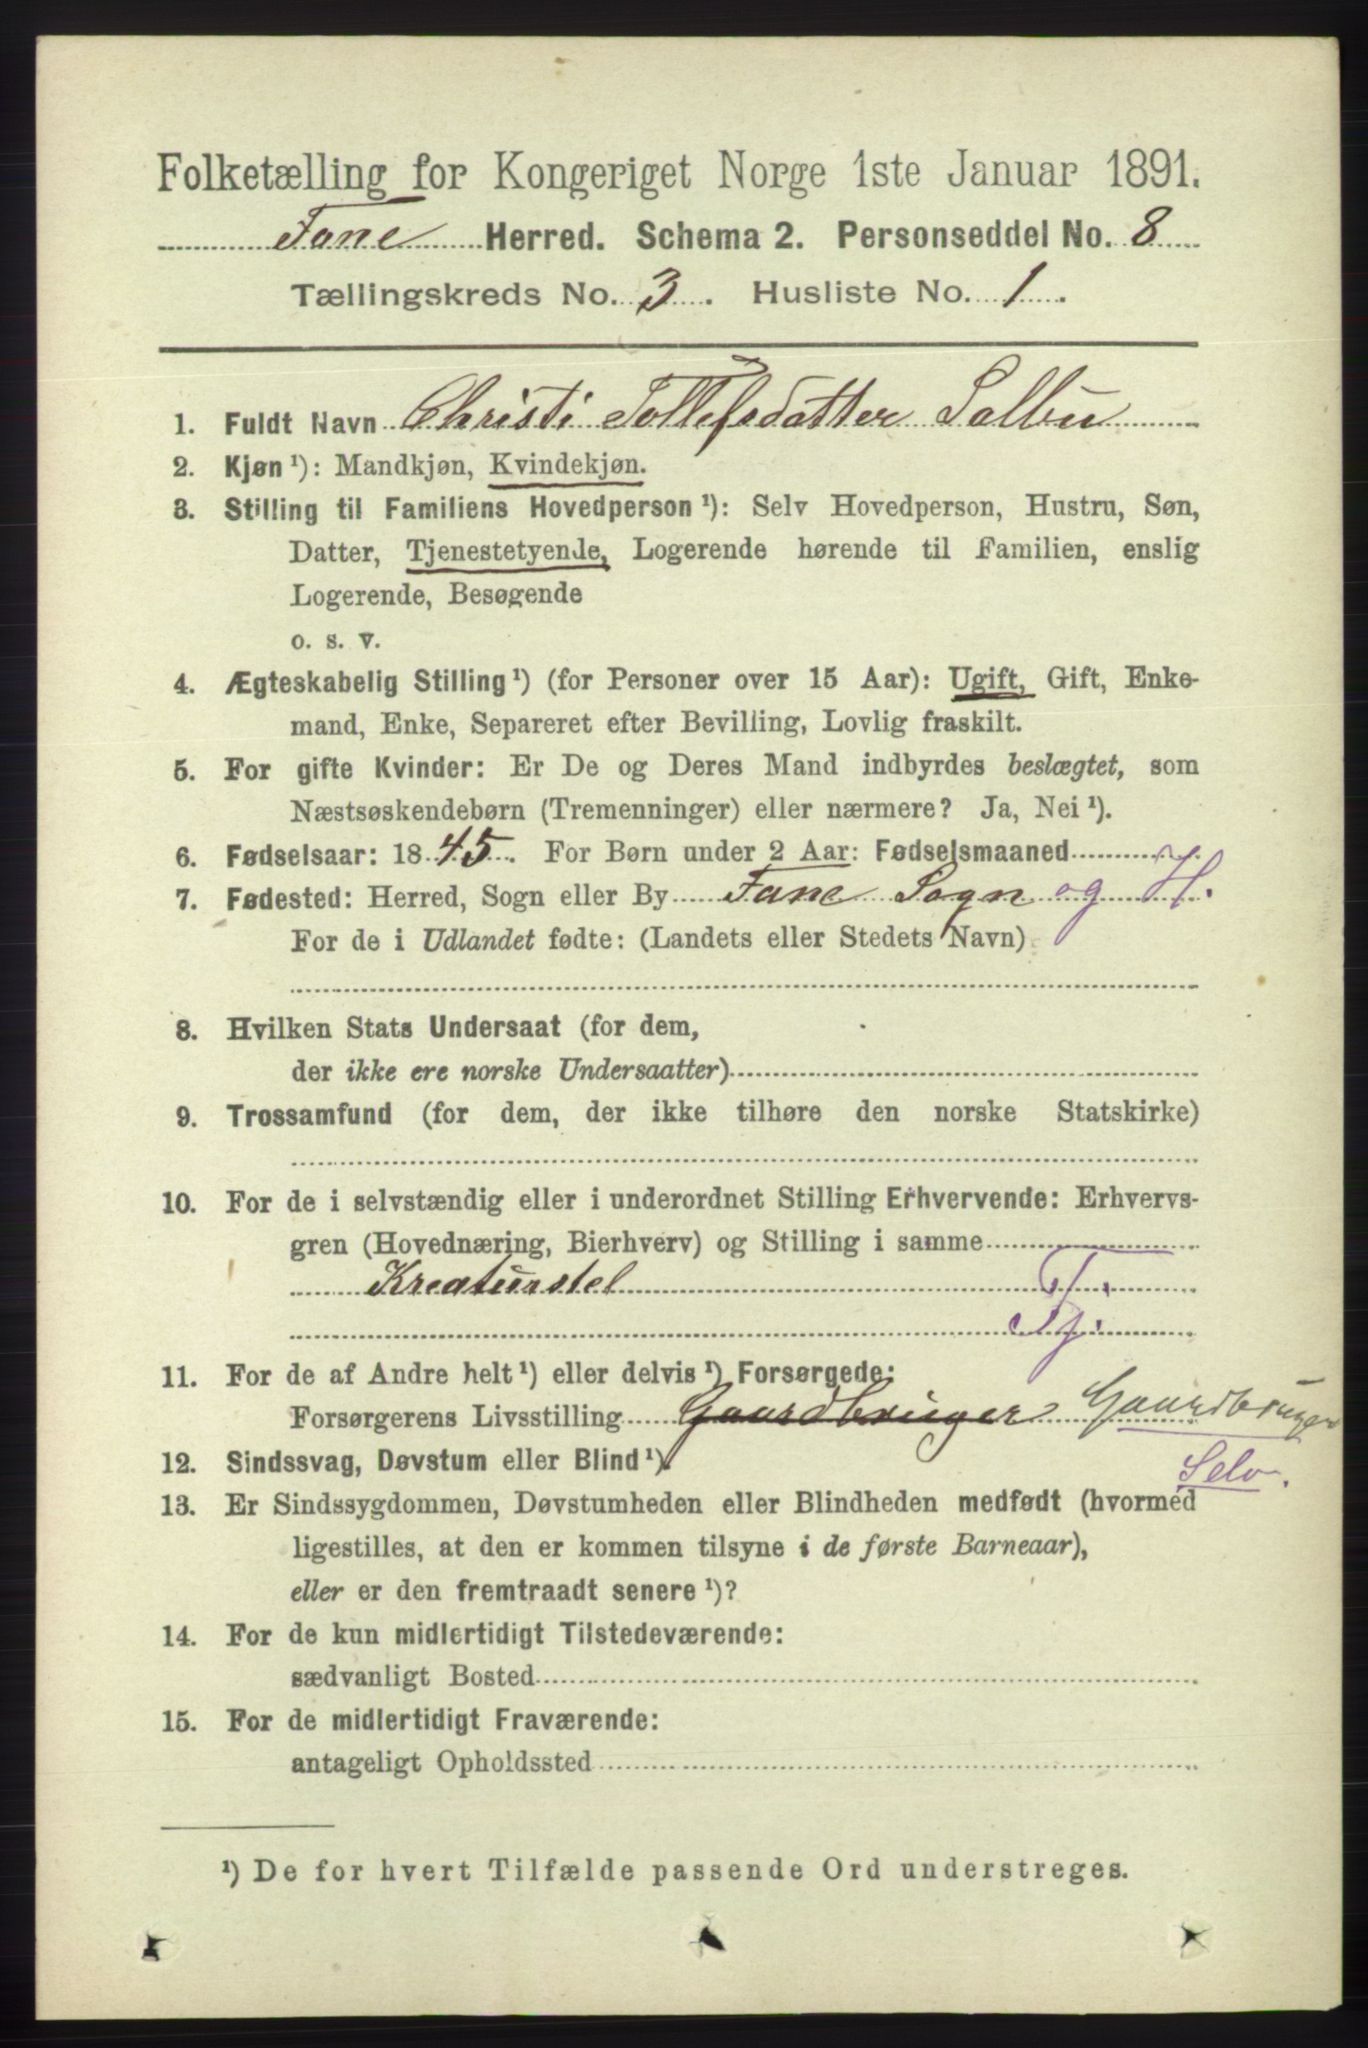 Folketælling for Kongeriget Norge 1ste Januar 1891.
Fane Herred. Schema 2. Personseddel No. 8
Tællingskreds No. 3. Husliste No. 1.
1. Fuldt Navn Christi Tollefsdatter Salbu
2. Kjøn ¹): Mandkjøn, Kvindekjøn.
3. Stilling til Familiens Hovedperson ¹): Selv Hovedperson, Hustru, Søn,
Datter, Tjenestetyende, Logerende hørende til Familien, enslig
Logerende, Besøgende
o. s. v.
4. Ægteskabelig Stilling ¹) (for Personer over 15 Aar): Ugift, Gift, Enke-
mand, Enke, Separeret efter Bevilling, Lovlig fraskilt.
5. For gifte Kvinder: Er De og Deres Mand indbyrdes beslægtet, som
Næstsøskendebørn (Tremenninger) eller nærmere? Ja, Nei ¹).
6. Fødselsaar: 1845. For Børn under 2 Aar: Fødselsmaaned
7. Fødested: Herred, Sogn eller By Fane Sogn og H.
For de i Udlandet fødte: (Landets eller Stedets Navn)
8. Hvilken Stats Undersaat (for dem,
der ikke ere norske Undersaatter)
9. Trossamfund (for dem, der ikke tilhøre den norske Statskirke)
10. For de i selvstændig eller i underordnet Stilling Erhvervende: Erhvervs-
gren (Hovednæring, Bierhverv) og Stilling i samme
Kreaturstel
Tj.
11. For de af Andre helt ¹) eller delvis ¹) Forsørgede:
Forsørgerens Livsstilling Gaardbruger Gaardbruger
12. Sindssvag, Døvstum eller Blind ¹).
Selv.
13. Er Sindssygdommen, Døvstumheden eller Blindheden medfødt (hvormed
ligestilles, at den er kommen tilsyne i de første Barneaar),
eller er den fremtraadt senere ¹)?
14. For de kun midlertidigt Tilstedeværende:
sædvanligt Bosted
15. For de midlertidigt Fraværende:
antageligt Opholdssted
¹) De for hvert Tilfælde passende Ord understreges.